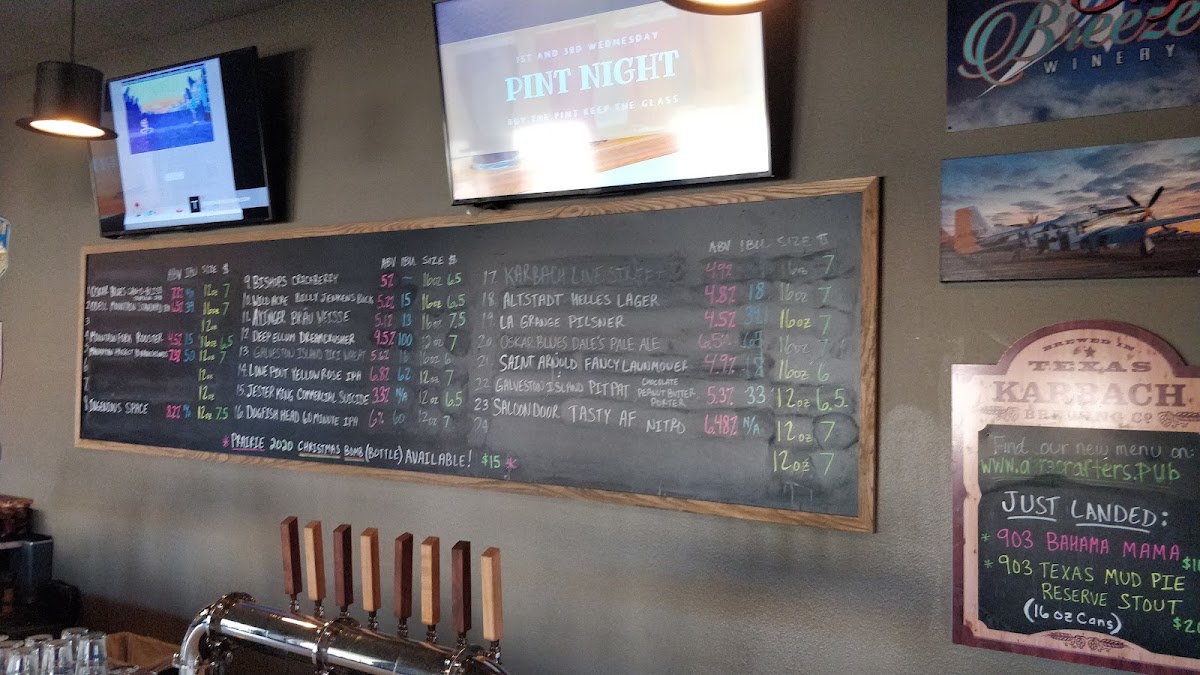 1ST AND 3RD WEDNESDAY
PINT NIGHT
BUY THE PINT KEEP THE GLASS
Breeze
WINERY
ABV IBU SIZE $
12oz 7
16oz 7
12oz
MOUNTAIN FORK ROOSTER 16oz 6.5
12oz 7
12oz
12oz
INGENIOUS SPACE 8.2% 12oz 7.5
ABV IBU SIZE $
9 BISHOPS CRACKBERRY 5% — 16oz 6.5
10 WILD ACRE BILLY JENKINS BOCK 5.2% 15 16oz 6.5
11 ALTINGER BRÄU WEISSE 5.1% 13 16oz 7.5
12 DEEP ELLUM DREAMCRUSHER 9.5% 100 12oz 7
13 GALVESTON ISLAND TIKI WHEAT 5.6% 18 16oz 6
14 LONE PINT YELLOW ROSE IPA 6.8% 62 12oz 7
15 JESTER KING COMMERCIAL SUICIDE 3.3% N/A 12oz 6.5
16 DOGFISH HEAD 60 MINUTE IPA 6% 60 12oz 7
ABV IBU SIZE $
17 KARBACH LOVE STREET 4.9% 16oz 7
18 ALTSTADT HELLES LAGER 4.8% 18 16oz 7
19 LA GRANGE PILSNER 4.5% 16oz 7
20 OSKAR BLUES DALE'S PALE ALE 6.5% 16oz 7
21 SAINT ARNOLD FAUCY LAWNMOWER 4.9% 18 16oz 6
22 GALVESTON ISLAND PITPAT CHOCOLATE PEANUT BUTTER PORTER 5.3% 33 12oz 6.5
23 SALOON DOOR TASTY AF NITRO 6.48% N/A 12oz 7
24 12oz 7
* PRAIRIE 2020 CHRISTMAS BOMB (BOTTLE) AVAILABLE! $15 *
BREWED IN
TEXAS
KARBACH
BREWING CO
Find our new menu on:
JUST LANDED:
* 903 BAHAMA MAMA
* 903 TEXAS MUD PIE
RESERVE STOUT
(16 oz Cans)